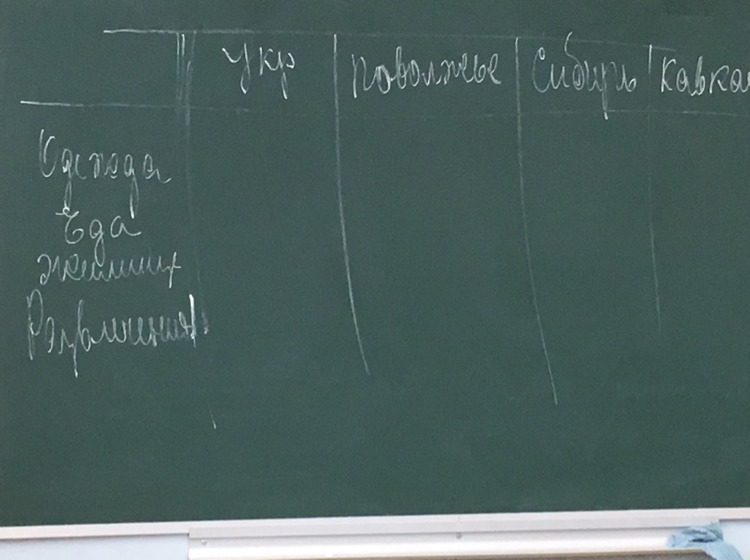 Укр Поволжье Сибирь Кавка
Одежда
Еда
Жилищ
Развлечения